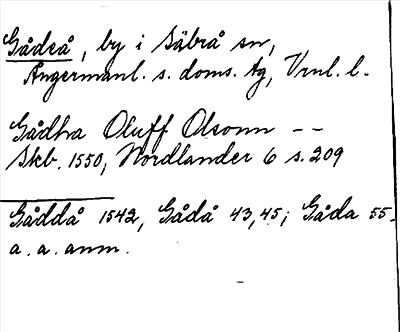 Gådeå, by i Säbrå sn,
Ångermanl. s. doms. tg, Vrnl. l.
Gådha Oluff Olsonn --
Skb. 1550, Nordlander 6 s. 209
Gåddå 1542, Gådå 43, 45; Gåda 55.
a. a. anm.